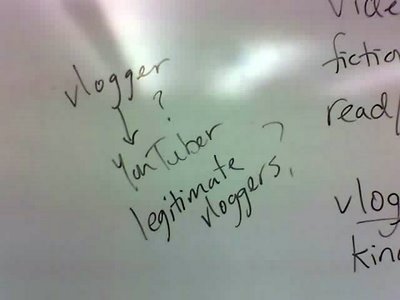 vlogger
?
YouTuber
legitimate
vloggers?
vide
fictio
read/
vlog
kind